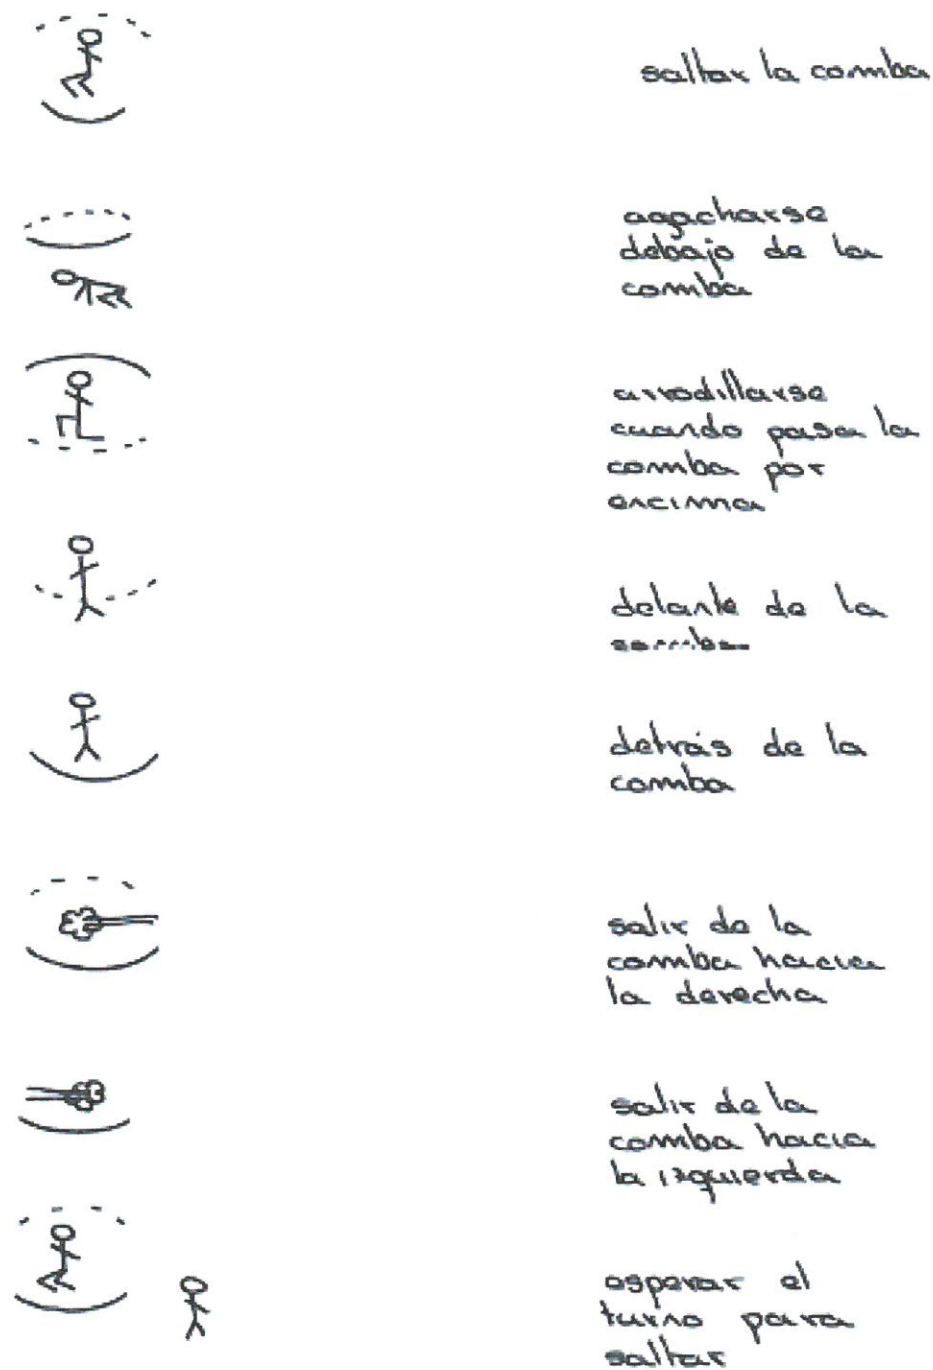 saltar la comba
agacharse
debajo de la
comba
arrodillarse
cuando pasa la
comba por
encima
delante de la
comba
detrás de la
comba
salir de la
comba hacia
la derecha
salir de la
comba hacia
la izquierda
esperar el
turno para
saltar